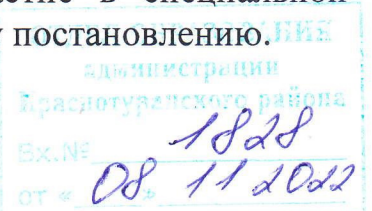 в специальной
постановлению.
администрации
Краснотуранского района
Вх.№ 1828
от « 08 » 11 2022